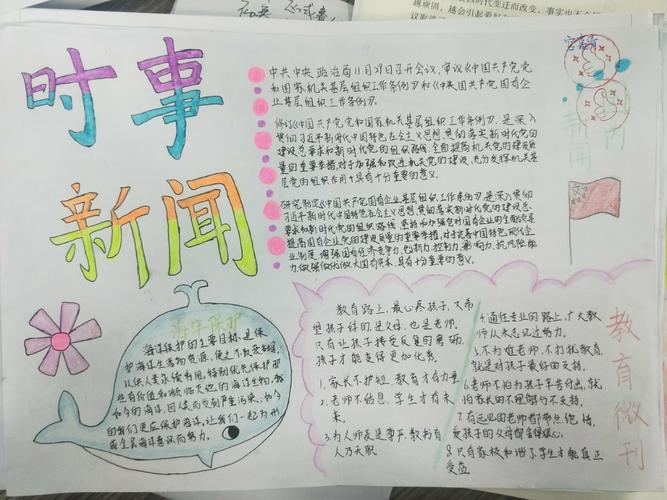 时事
新闻
中共中央政治局11月29日召开会议，审议《中国共产党党
和国家机关基层组织工作条例》和《中国共产党国有企
业基层组织工作条例》。
修订《中国共产党党和国家机关基层组织工作条例》，是深入
贯彻习近平新时代中国特色社会主义思想，贯彻落实新时代党的
建设总要求和新时代党的组织路线，全面提高机关党的建设质
量的重要举措，对于加强和改进机关党的建设，充分发挥机关基
层党的组织作用，具有十分重要的意义。
研究制定《中国共产党国有企业基层组织工作条例》，是深入贯彻
习近平新时代中国特色社会主义思想，贯彻落实新时代党的建设总
要求和新时代党的组织路线，坚持和加强党对国有企业的全面领导
提高国有企业党的建设质量的重要举措，对于完善中国特色现代企
业制度，增强国有经济竞争力、创新力、控制力、影响力、抗风险能
力，做强做优做大国有资本，具有十分重要的意义。
海洋保护
海洋保护的主要目标是保
护海洋生物资源，使之不致衰竭，
以供人类永续利用，特别优先保护那
的我们更应保护海洋，让我们一起为形
成全民海洋意识而努力。
教育路上，最心疼孩子，又希
望孩子好的，是父母，也是老师。
只有让孩子接受反复的磨砺，
孩子才能变得更加优秀。
1.家长不护短，教育才有力量
2.老师不怕忌，学生才有未
来。
3.为人师表是尊严，教书育
人乃天职
4.通往专业的路上，广大教
师从未忘记过努力。
5.不为难老师，不打扰教育，
就是对孩子最好的支持。
6.老师不怕为孩子辛苦付出，就
怕家长的不理解与不支持。
7.有远见的老师都带点绝情，
8.只有家校和谐了学生才能真正
受益
教育微刊